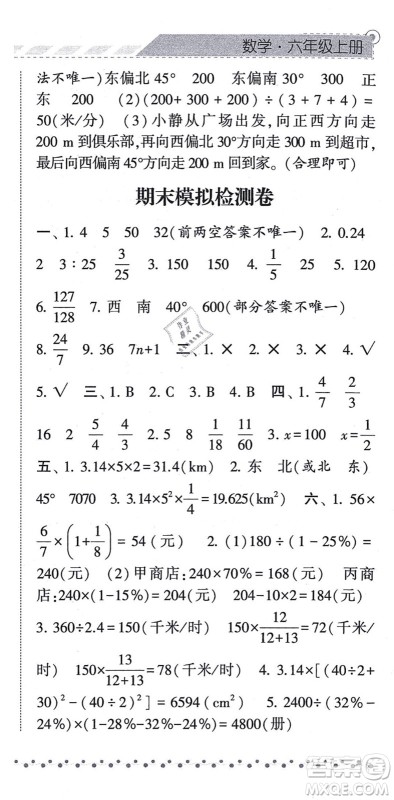 数学·六年级上册
法不唯一)东偏北45° 200 东偏南30° 300 正
东 200 (2)(200+300+200)÷(3+7+4)=
50(米/分) (3)小静从少年宫出发,向正西方向走
200 m到俱乐部,再向西偏北30°方向走300 m到超市,
最后向西偏南45°方向走200 m回到家。(合理即可)
期末模拟检测卷
一、1. 4 5 50 32(前两空答案不唯一) 2. 0.24
2 3∶25 3/25 3. 150 150 4. 1/5 25 5. 120
6. 127/128 7. 西 南 40° 600(部分答案不唯一)
8. 24/7 9. 36 7n+1 二、1. × 2. × 3. × 4. √
5. √ 三、1. B 2. C 3. B 4. B 四、1. 4/7 2/3
16 2 5/4 4/3 2. 5 8 1/18 11/60 3. x=100 x=1/2
五、1. 3.14×5×2=31.4(km) 2. 东 北(或北 东)
45° 7070 3. 3.14×5²×1/4=19.625(km²) 六、1. 56×
6/7×(1+1/8)=54(元) 2. (1)180÷(1-25%)=
240(元) (2)甲商店:240×70%=168(元) 丙商
店:240×(1-15%)=204(元) 204-10×2=184(元)
3. 360÷2.4=150(千米/时) 150×12/(12+13)=72(千米/
时) 150×13/(12+13)=78(千米/时) 4. 3.14×[(40÷2+
30)²-(40÷2)²]=6594(cm²) 5. 2400÷(32%-
24%)×(1-28%-32%-24%)=4800(册)
作业
精灵
答案圈
MXQE.COM